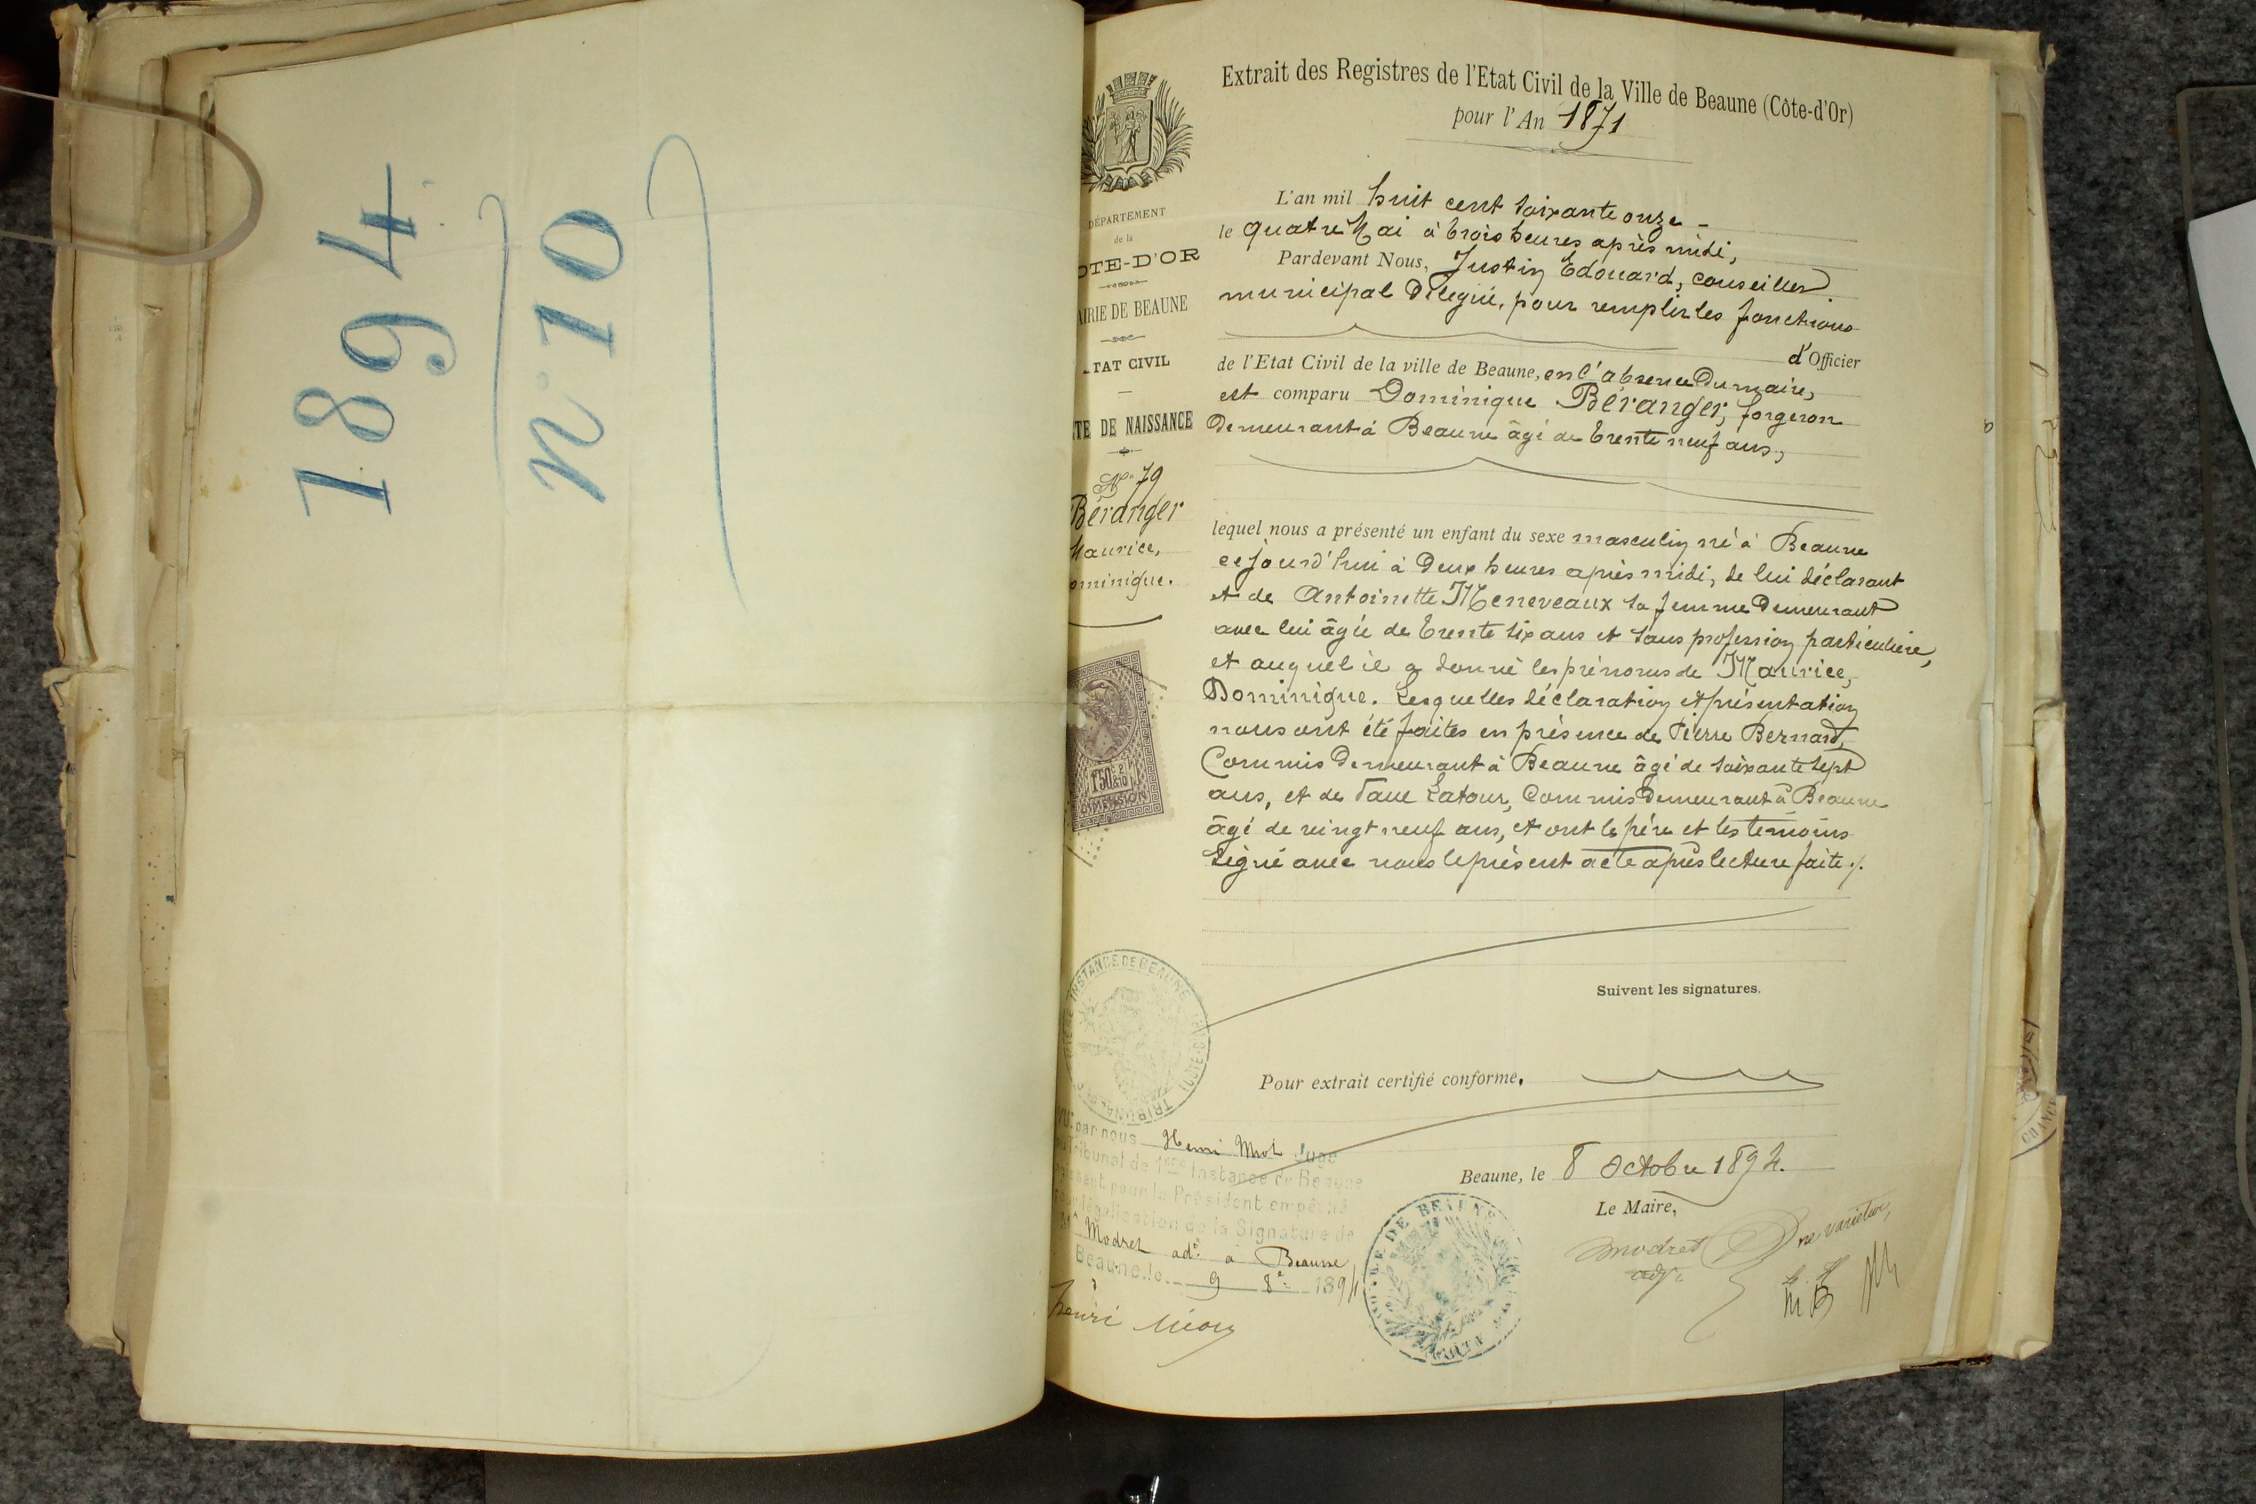 1894
n°10
Extrait des Registres de l'Etat Civil de la Ville de Beaune (Côte-d'Or)
pour l'An 1871
DÉPARTEMENT
de la
OTE-D'OR
AIRIE DE BEAUNE
TAT CIVIL
TE DE NAISSANCE
N° 79
Béranger
Maurice,
ominique.
1F50
DIMENSION
L'an mil huit cent soixante onze
le quatre Mai à trois heures après midi,
Pardevant Nous, Justin Edouard, conseiller
municipal Délégué, pour remplir les fonctions
d'Officier
de l'Etat Civil de la ville de Beaune, en l'absence Du maire,
est comparu Dominique Béranger, forgeron
Demeurant à Beaune âgé de trente neuf ans,
lequel nous a présenté un enfant du sexe masculin né à Beaune
cejourd'hui à Deux heures après midi, de lui déclarant
et de Antoinette Meneveaux sa femme Demeurant
avec lui âgée de trente six ans et sans profession particulière,
et auquel il a donné les prénoms de Maurice,
Dominique. Lesquelles déclaration et présentation
nous ont été faites en présence de Pierre Bernard,
Commis Demeurant à Beaune âgé de soixante sept
ans, et de Paul Latour, Commis Demeurant à Beaune
âgé de vingt neuf ans, et ont le père et les témoins
signé avec nous le présent acte après lecture faite ./.
Suivent les signatures.
Pour extrait certifié conforme.
INSTANCE DE BEAUNE
par nous Henri Juge
Tribunal de 1ere Instance de Beaune
pour le Président empêché
légalisation de la Signature de
Modret adt à Beaune
Beaune, le 9 8e 1894
Henri
Beaune, le 8 Octobre 1894.
Le Maire,
Modret
adj.
Ne varietur,
M B
DE BEAUNE